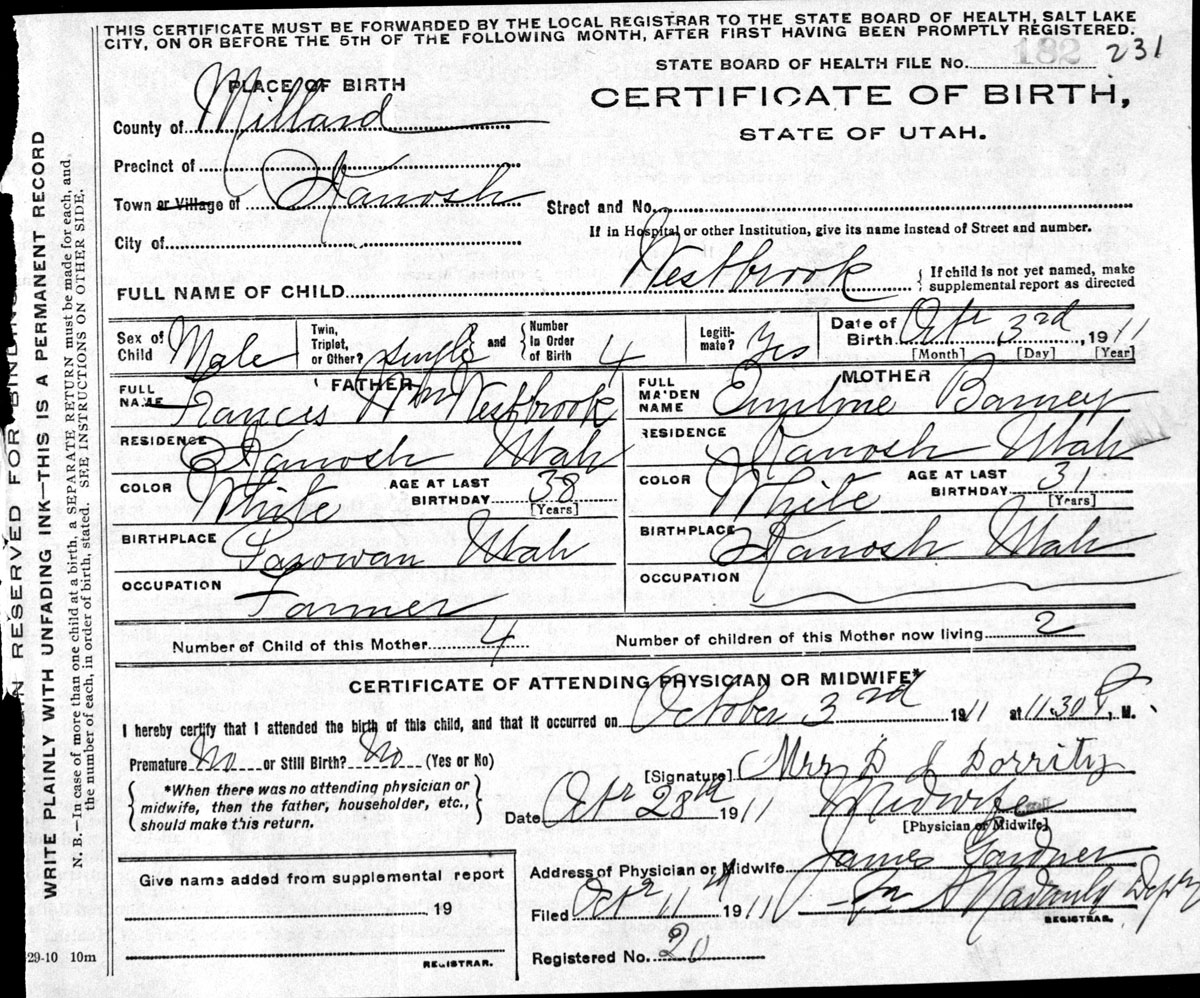 THIS CERTIFICATE MUST BE FORWARDED BY THE LOCAL REGISTRAR TO THE STATE BOARD OF HEALTH, SALT LAKE
CITY, ON OR BEFORE THE 5TH OF THE FOLLOWING MONTH, AFTER FIRST HAVING BEEN PROMPTLY REGISTERED.
STATE BOARD OF HEALTH FILE No. 182 231
PLACE OF BIRTH
CERTIFICATE OF BIRTH,
STATE OF UTAH.
County of Millard
Precinct of
Town or Village of Kanosh
Street and No.
If in Hospital or other Institution, give its name Instead of Street and number.
City of
FULL NAME OF CHILD Westbrook
{ If child is not yet named, make
supplemental report as directed
Sex of Child Male
Twin, Triplet, or Other? single and { Number In Order of Birth 4
Legiti- mate? Yes
Date of Birth Oct 3rd, 1911
[Month] [Day] [Year]
FATHER
FULL NAME Frances Wm Westbrook
RESIDENCE Kanosh Utah
COLOR White AGE AT LAST BIRTHDAY 38 [Years]
BIRTHPLACE Parowan Utah
OCCUPATION Farmer
MOTHER
FULL MAIDEN NAME Emiline Barney
RESIDENCE Kanosh Utah
COLOR White AGE AT LAST BIRTHDAY 31 [Years]
BIRTHPLACE Kanosh Utah
OCCUPATION
Number of Child of this Mother 4 Number of children of this Mother now living 2
CERTIFICATE OF ATTENDING PHYSICIAN OR MIDWIFE*
I hereby certify that I attended the birth of this child, and that it occurred on October 3rd 1911 at 11 30 P. M.
Premature No or Still Birth? No (Yes or No)
{ *When there was no attending physician or
midwife, then the father, householder, etc.,
should make this return. }
[Signature] Mrs D J Dorrity
Date Oct 28th 1911 Midwife
[Physician or Midwife]
Address of Physician or Midwife James Gardner
Filed Oct 11th 1911
REGISTRAR.
Registered No. 20
Give name added from supplemental report
19
REGISTRAR.
29-10 10m
MARGIN RESERVED FOR BINDING
WRITE PLAINLY WITH UNFADING INK—THIS IS A PERMANENT RECORD
N. B.—In case of more than one child at a birth, a SEPARATE RETURN must be made for each, and,
the number of each, in order of birth, stated. SEE INSTRUCTIONS ON OTHER SIDE.